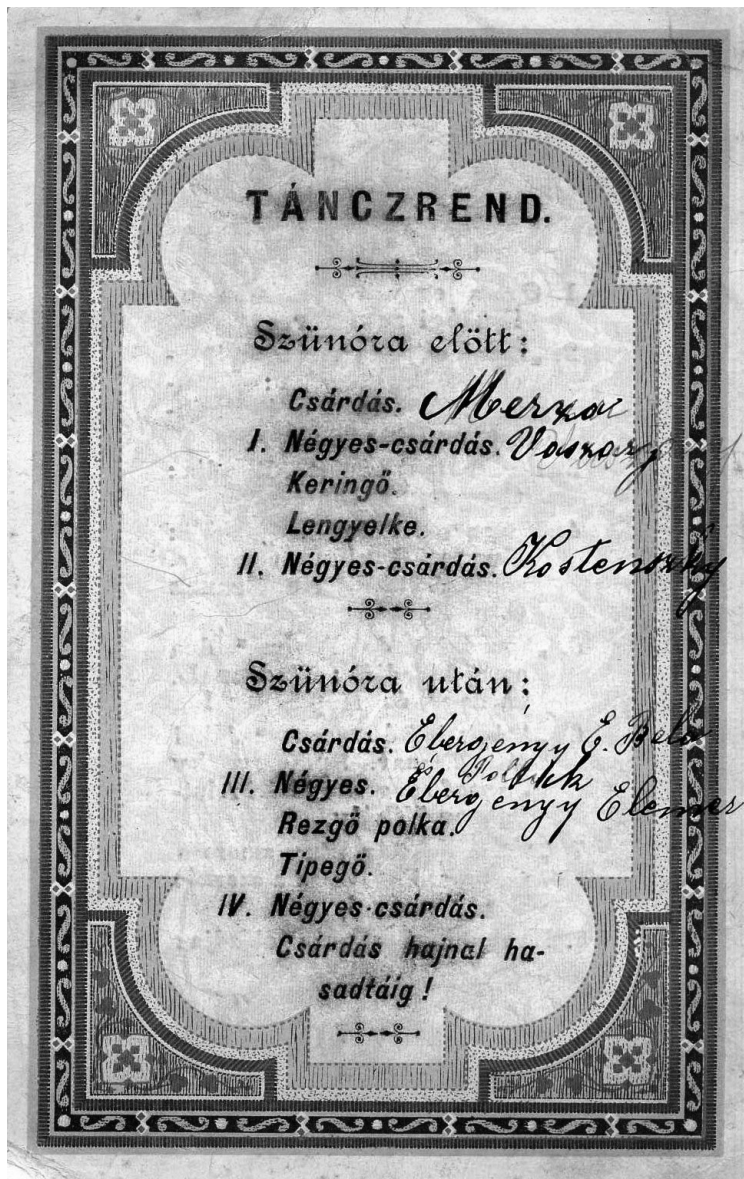 TÁNCZREND.
Szünóra előtt:
Csárdás. Merza
I. Négyes-csárdás.
Keringő.
Lengyelke.
II. Négyes-csárdás. Kostenszky
Szünóra után;
Csárdás. Ebergényy E. Bela
III. Négyes. Ebergényy Elemer
Rezgő polka.
Tipegő.
IV. Négyes-csárdás.
Csárdás hajnal ha-
sadtáig!